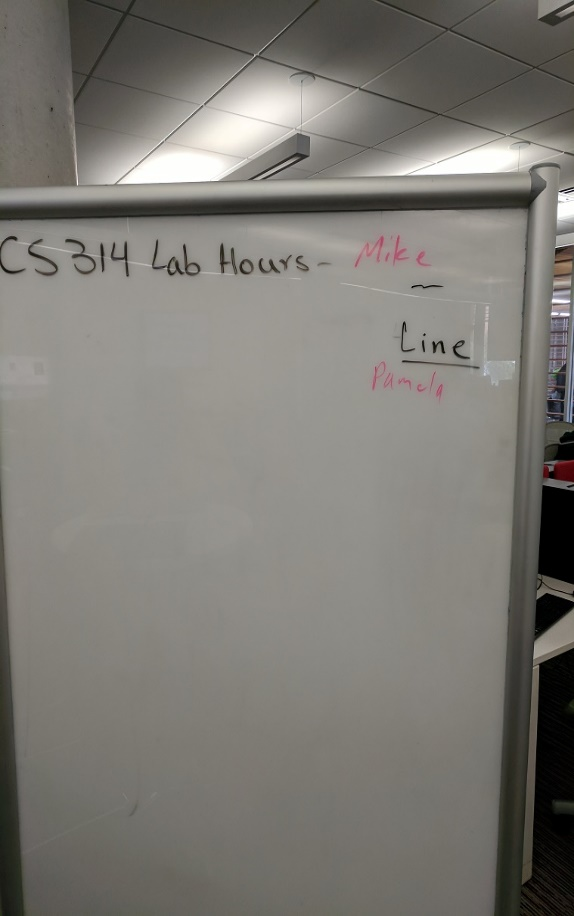 CS 314 Lab Hours - Mike
Line
Pamela